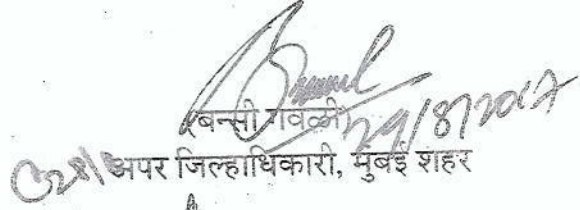 (बन्सी गवळी)
29/8/2017
अपर जिल्हाधिकारी, मुंबई शहर